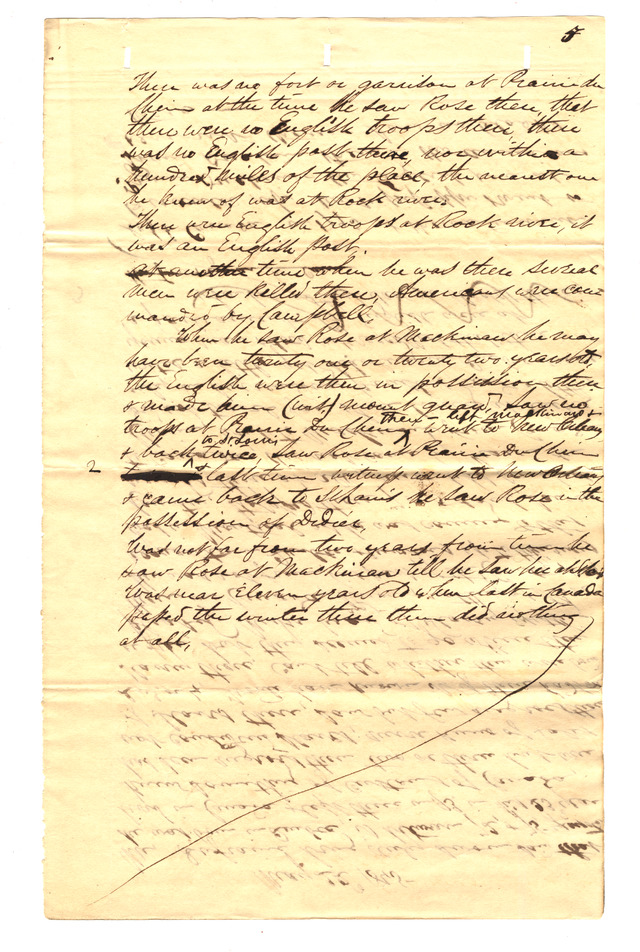 5
There was no fort or garrison at Prairie du
Chein at the time he saw Rose there, that
there were no English troops there, there
was no English post there, nor within a
hundred miles of the place, the nearest one
he knew of was at Rock river.
There were English troops at Rock river, it
was an English post.
at another time when he was there several
men were killed there, Americans were com
manded by Campbell.
When he saw Rose at Mackinaw he may
have been twenty one or twenty two years old
the English were then in possession there
& made him (wit) mount guard, saw no
troops at Prairie Du Chein then - left Mackinaw &
went to New Orleans
& back to St Louis twice, saw Rose at Prairie Du Chein
2 & last time witness went to New Orleans
& came back to St Louis he saw Rose in the
possession of Didier.
Was not far from two years from time he
saw Rose at Mackinaw till he saw her at
Was near Eleven years old when last in Canada
passed the winter there then did nothing
at all,